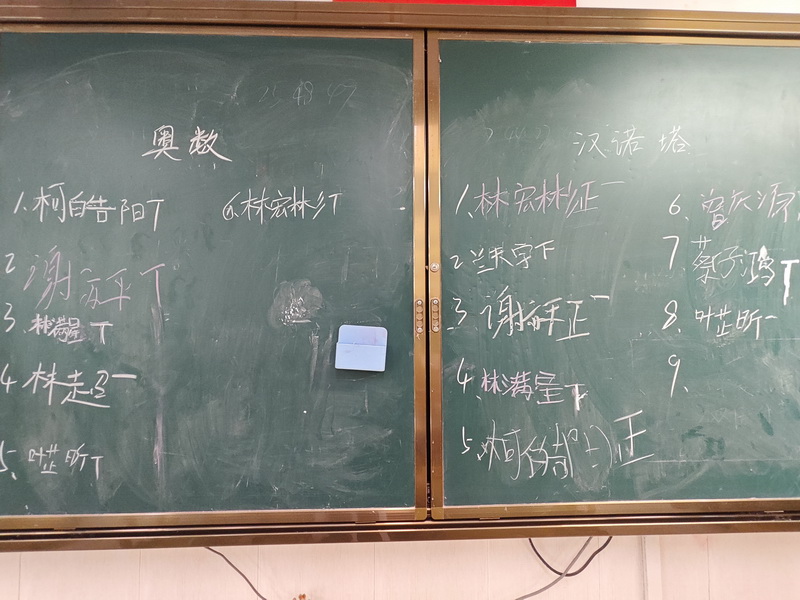 奥数
1.柯皓阳T
6.林宏彬T
2 谢 平T
3.林满星T
4.林 一
5、叶芷昕T
汉诺塔
1、林宏彬正一
2 兰天宇下
3、谢 平正一
4、林满星T
5、柯 正
6、曾庆源
7、蔡子鸿T
8、叶芷昕一
9、